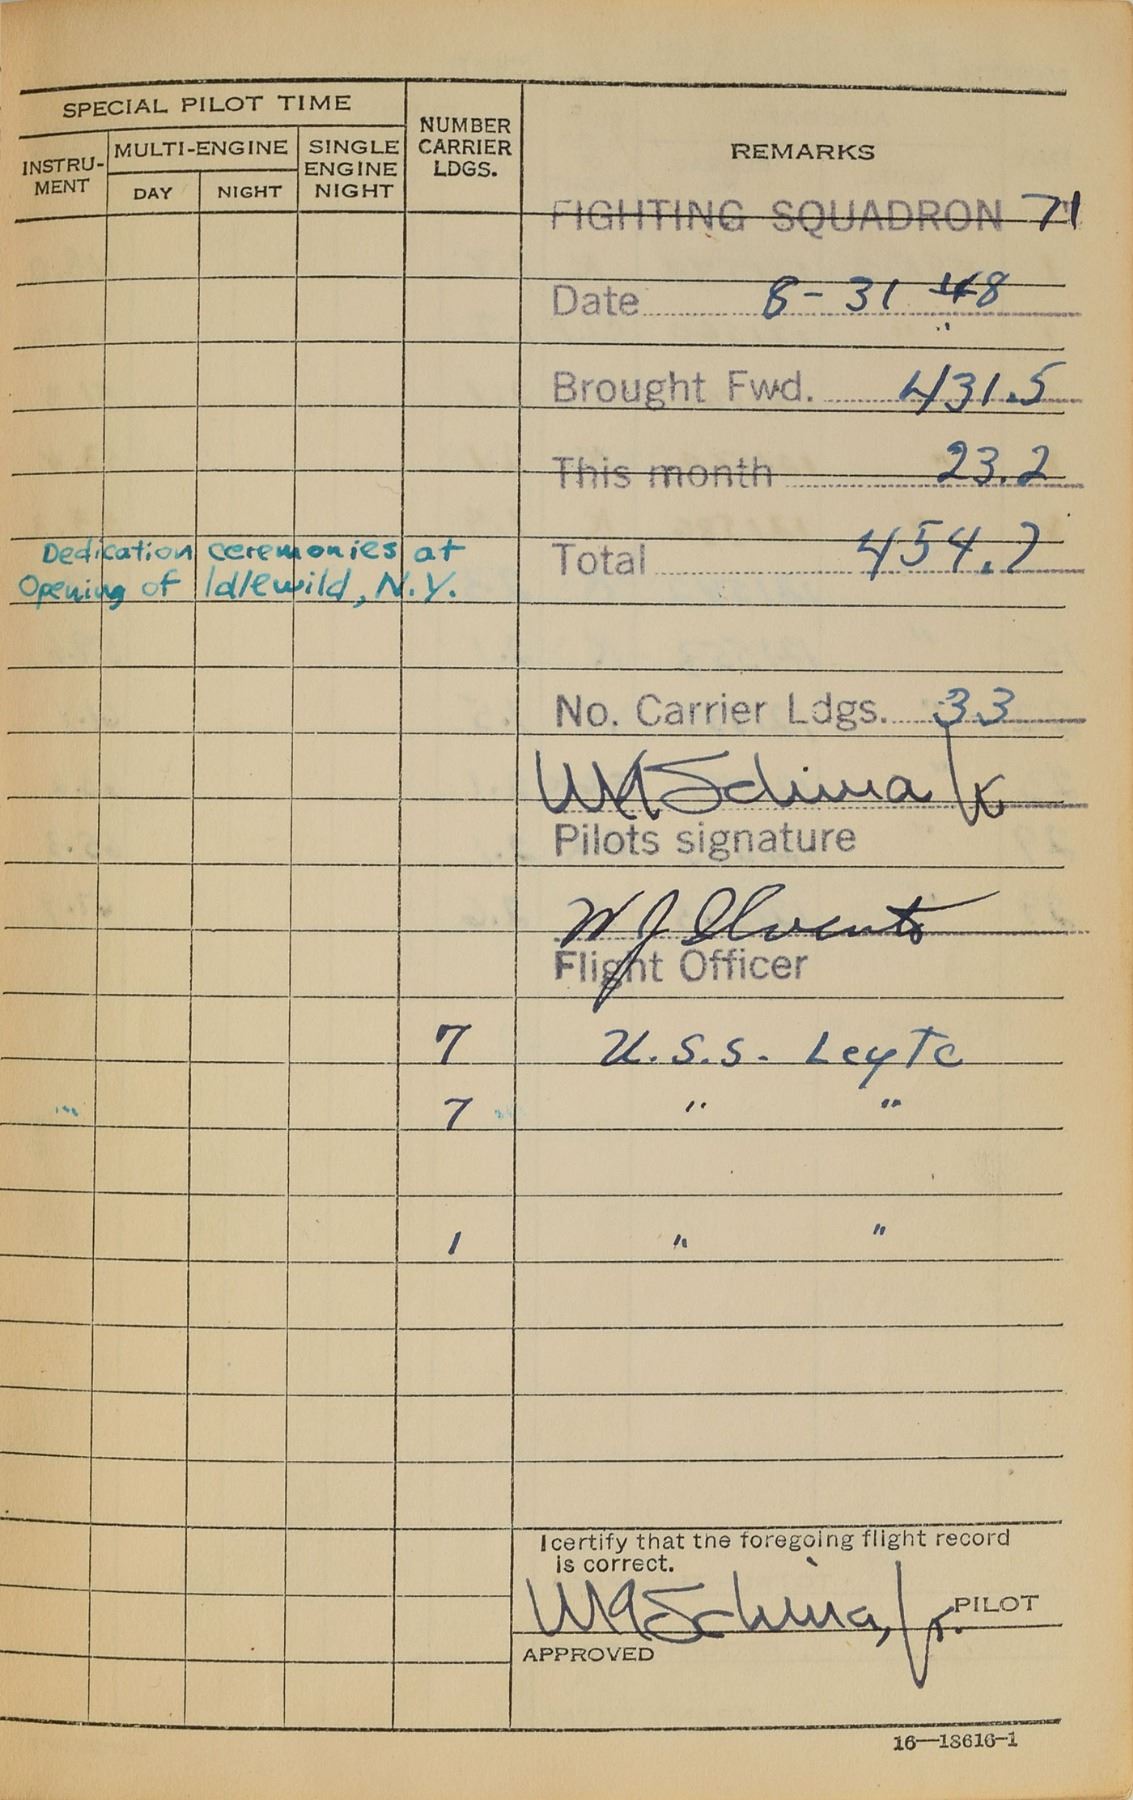 SPECIAL PILOT TIME
INSTRU-
MENT
MULTI-ENGINE
DAY
NIGHT
SINGLE
ENGINE
NIGHT
NUMBER
CARRIER
LDGS.
REMARKS
FIGHTING SQUADRON 71
Date 8-31 48
Brought Fwd. 431.5
This month 23.2
Dedication ceremonies at
Opening of Idlewild, N.Y.
Total 454.7
No. Carrier Ldgs. 33
WASchima Jr
Pilots signature
W J
Flight Officer
7 U.S.S. Leyte
7 " "
1 " "
I certify that the foregoing flight record
is correct.
WASchima, Jr. PILOT
APPROVED
16—13616-1